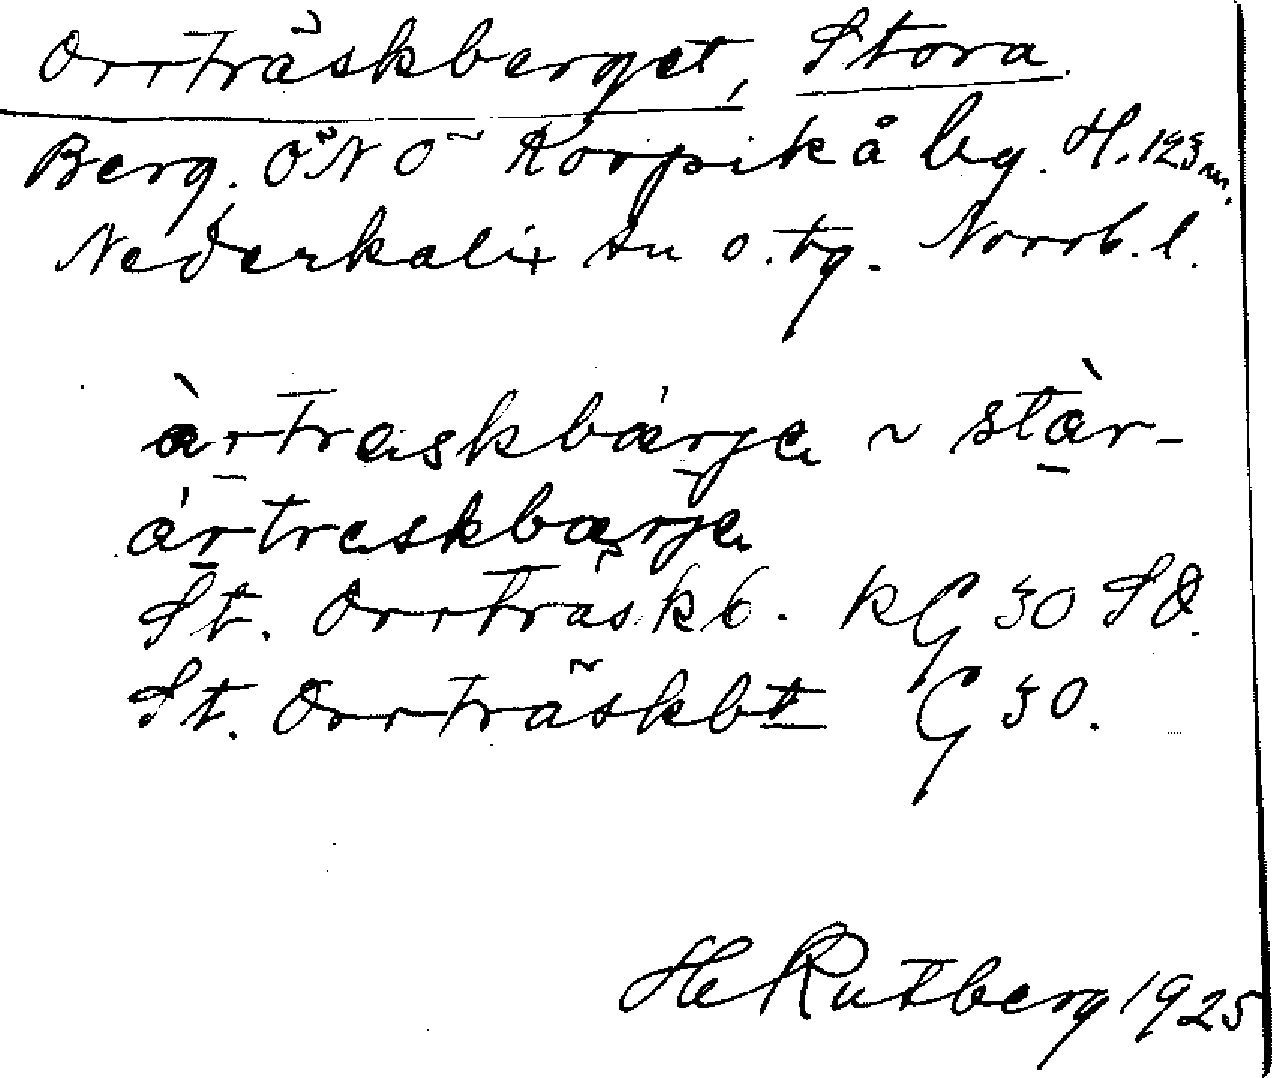 Orrträskberget, Stora
Berg. ÖNÖ Korpikå by. H. 123 m.
Nederkalix sn o. tg. Norrb. l.
àrtraskbárja ~ stàr-
ártraskbærja
St. Orrträskb. KG 30 SO.
St. Orrträskbt G 30.
He Rutberg 1925